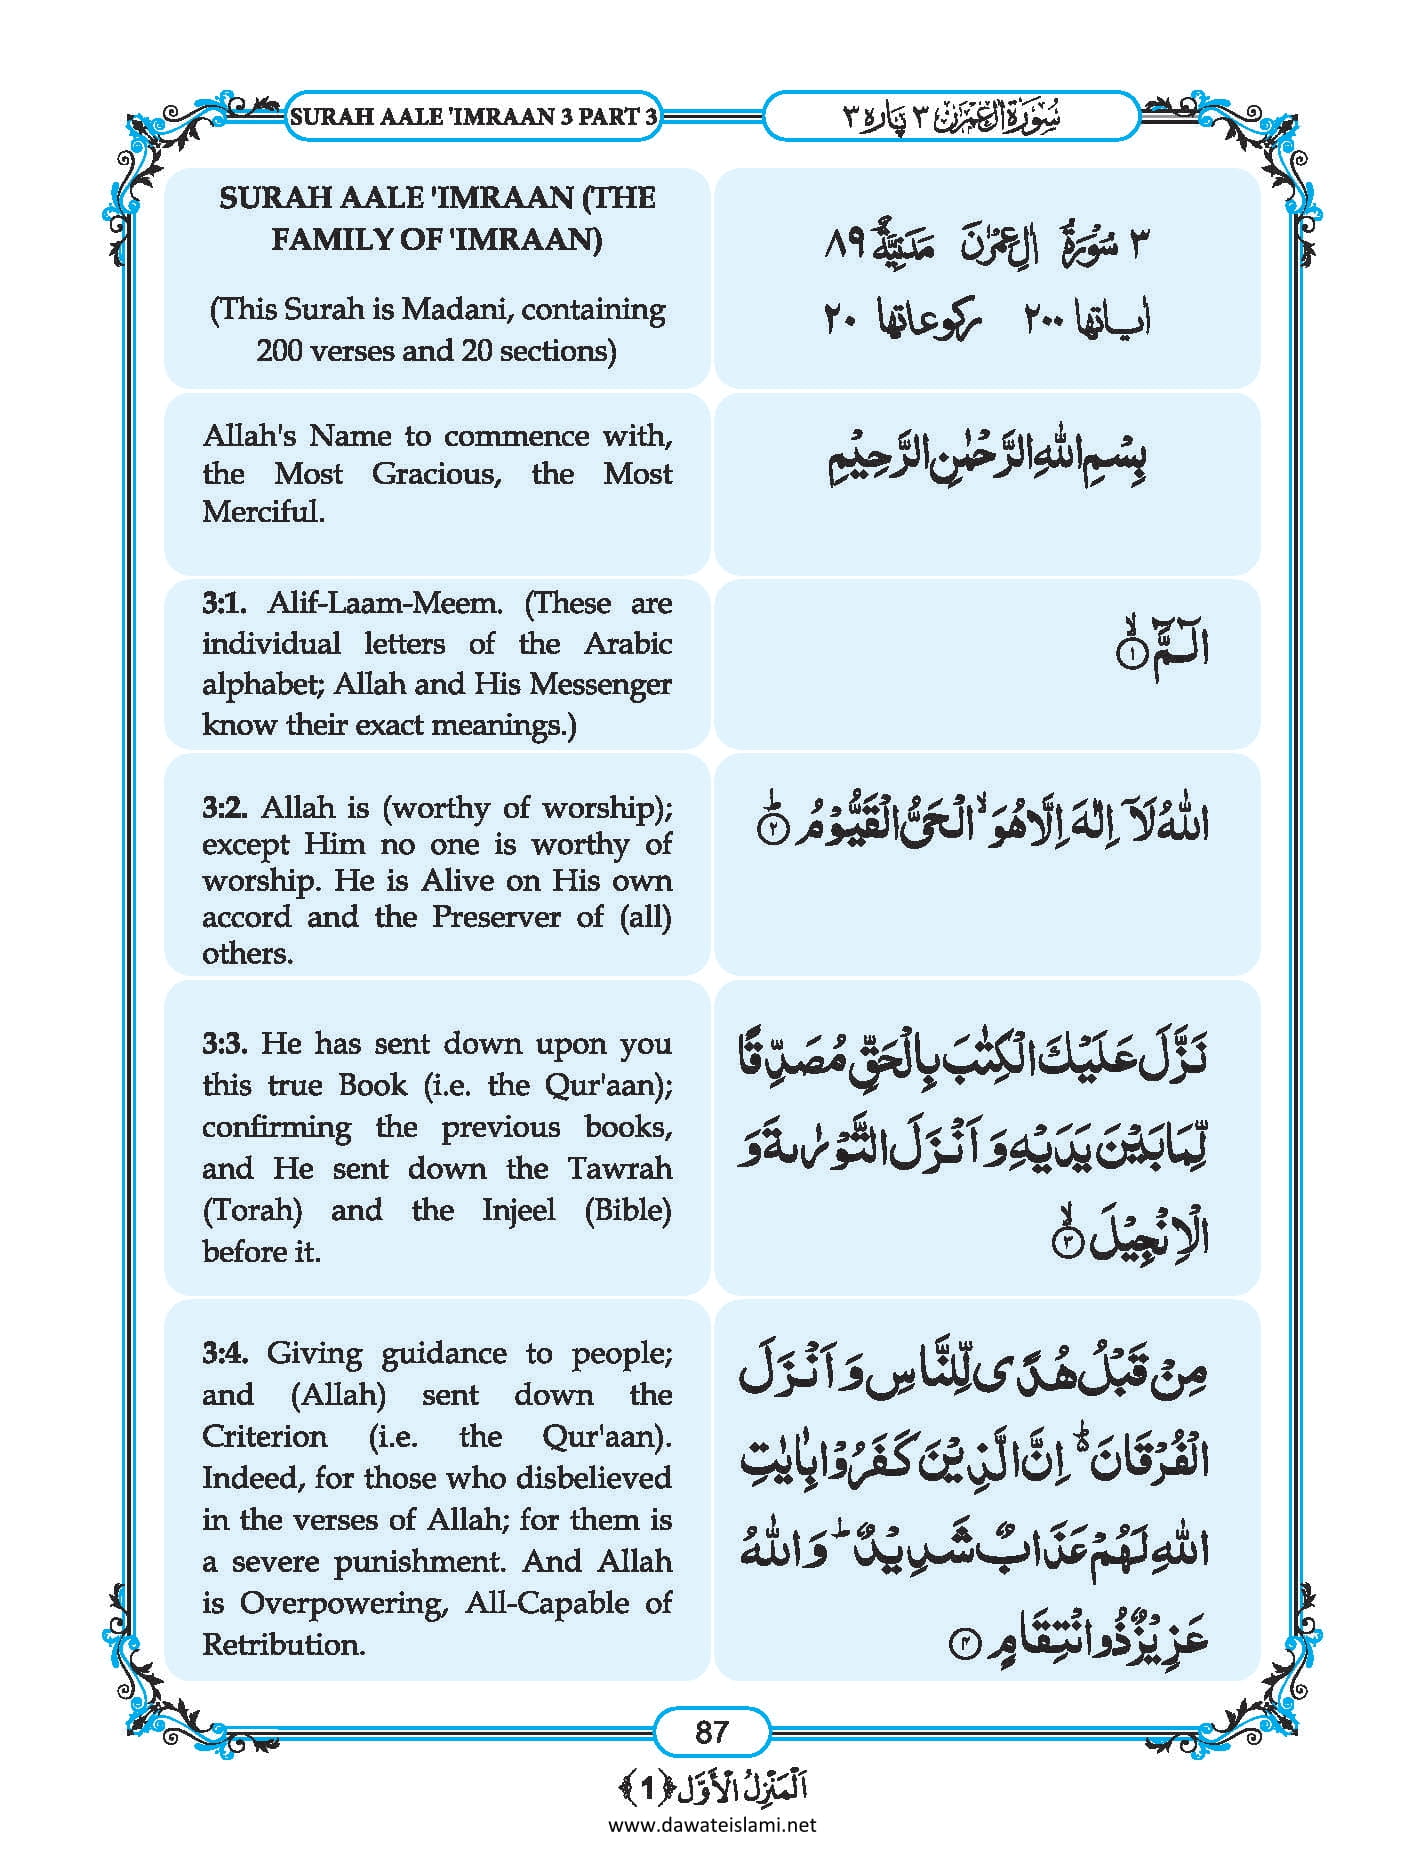 SURAH AALE 'IMRAAN 3 PART 3
سُوْرَةُ اٰلِ عِمْرٰن ٣ پَارہ ٣
SURAH AALE 'IMRAAN (THE
FAMILY OF 'IMRAAN)
(This Surah is Madani, containing
200 verses and 20 sections)
٣ سُوْرَةُ اٰلِ عِمْرٰنَ مَدَنِيَّةٌ ٨٩
اٰیاتها ٢٠٠ رکوعاتها ٢٠
Allah's Name to commence with,
the Most Gracious, the Most
Merciful.
بِسْمِ اللّٰهِ الرَّحْمٰنِ الرَّحِيْمِ
3:1. Alif-Laam-Meem. (These are
individual letters of the Arabic
alphabet; Allah and His Messenger
know their exact meanings.)
الٓـمّٓ ۙ﴿١﴾
3:2. Allah is (worthy of worship);
except Him no one is worthy of
worship. He is Alive on His own
accord and the Preserver of (all)
others.
اللّٰهُ لَاۤ اِلٰهَ اِلَّا هُوَ ۙ الْحَیُّ الْقَیُّوْمُ ؕ﴿٢﴾
3:3. He has sent down upon you
this true Book (i.e. the Qur'aan);
confirming the previous books,
and He sent down the Tawrah
(Torah) and the Injeel (Bible)
before it.
نَزَّلَ عَلَیْكَ الْكِتٰبَ بِالْحَقِّ مُصَدِّقًا
لِّمَا بَیْنَ یَدَیْهِ وَ اَنْزَلَ التَّوْرٰىةَ وَ
الْاِنْجِیْلَ ۙ﴿٣﴾
3:4. Giving guidance to people;
and (Allah) sent down the
Criterion (i.e. the Qur'aan).
Indeed, for those who disbelieved
in the verses of Allah; for them is
a severe punishment. And Allah
is Overpowering, All-Capable of
Retribution.
مِنْ قَبْلُ هُدًی لِّلنَّاسِ وَ اَنْزَلَ
الْفُرْقَانَ ۬ؕ اِنَّ الَّذِیْنَ كَفَرُوْا بِاٰیٰتِ
اللّٰهِ لَهُمْ عَذَابٌ شَدِیْدٌ ؕ وَ اللّٰهُ
عَزِیْزٌ ذُو انْتِقَامٍ ﴿۴﴾
87
اَلْمَنْزِلُ الْاَوَّل ﴿1﴾
www.dawateislami.net